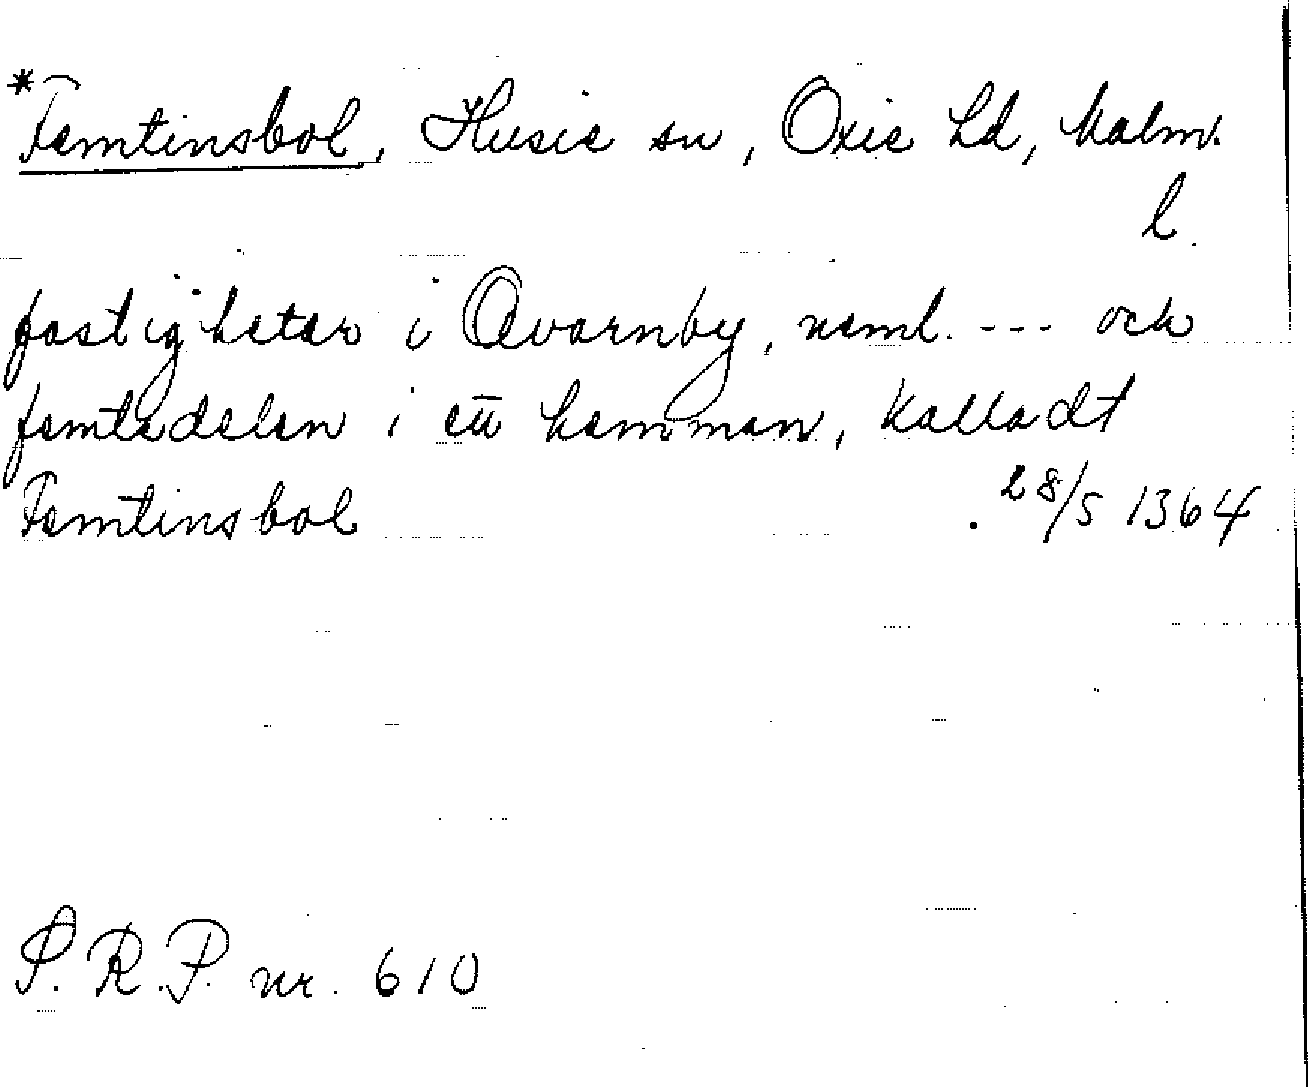 *Femtinsbol, Husie sn, Oxie hd, Malm.
l.
fastigheter i Qvarnby, neml. --- och
femtedelen i ett hemman, kalladt
Femtinsbol . 28/5 1364
S.R.P. nr. 610